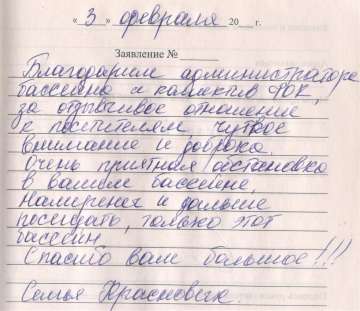 « 3 » февраля 20__ г.
Заявление № ______
Благодарим администратора
бассейна и коллектив ФОК,
за отзывчивое отношение
к посетителям, чуткое
внимание и
Очень приятная обстановка
в вашем бассейне.
и дальше
посещать, только этот
бассейн.
Спасибо вам большое!!!
Семья